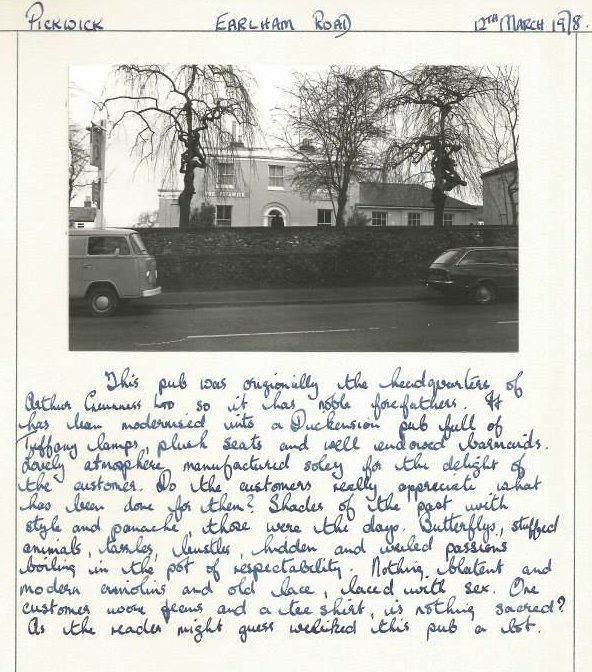 PICKWICK EARLHAM ROAD 12TH MARCH 1978.
This pub was origionally the headquarters of
Arthur Guinness LTD so it has noble forefathers. It
has been modernised into a Dickension pub full of
Tiffany lamps, plush seats and well endowed barmaids.
Lovely atmosphere manufactured soley for the delight of
the customer. Do the customers really appreciate what
has been done for them? Shades of the past with
style and panache, those were the days. Butterflys, stuffed
animals, tassles, bustles, hidden and veiled passions
boiling in the pot of respectability. Nothing blatent and
modern crinolins and old lace, laced with sex. One
customer wore jeans and a tee shirt, is nothing sacred?
As the reader might guess we liked this pub a lot.